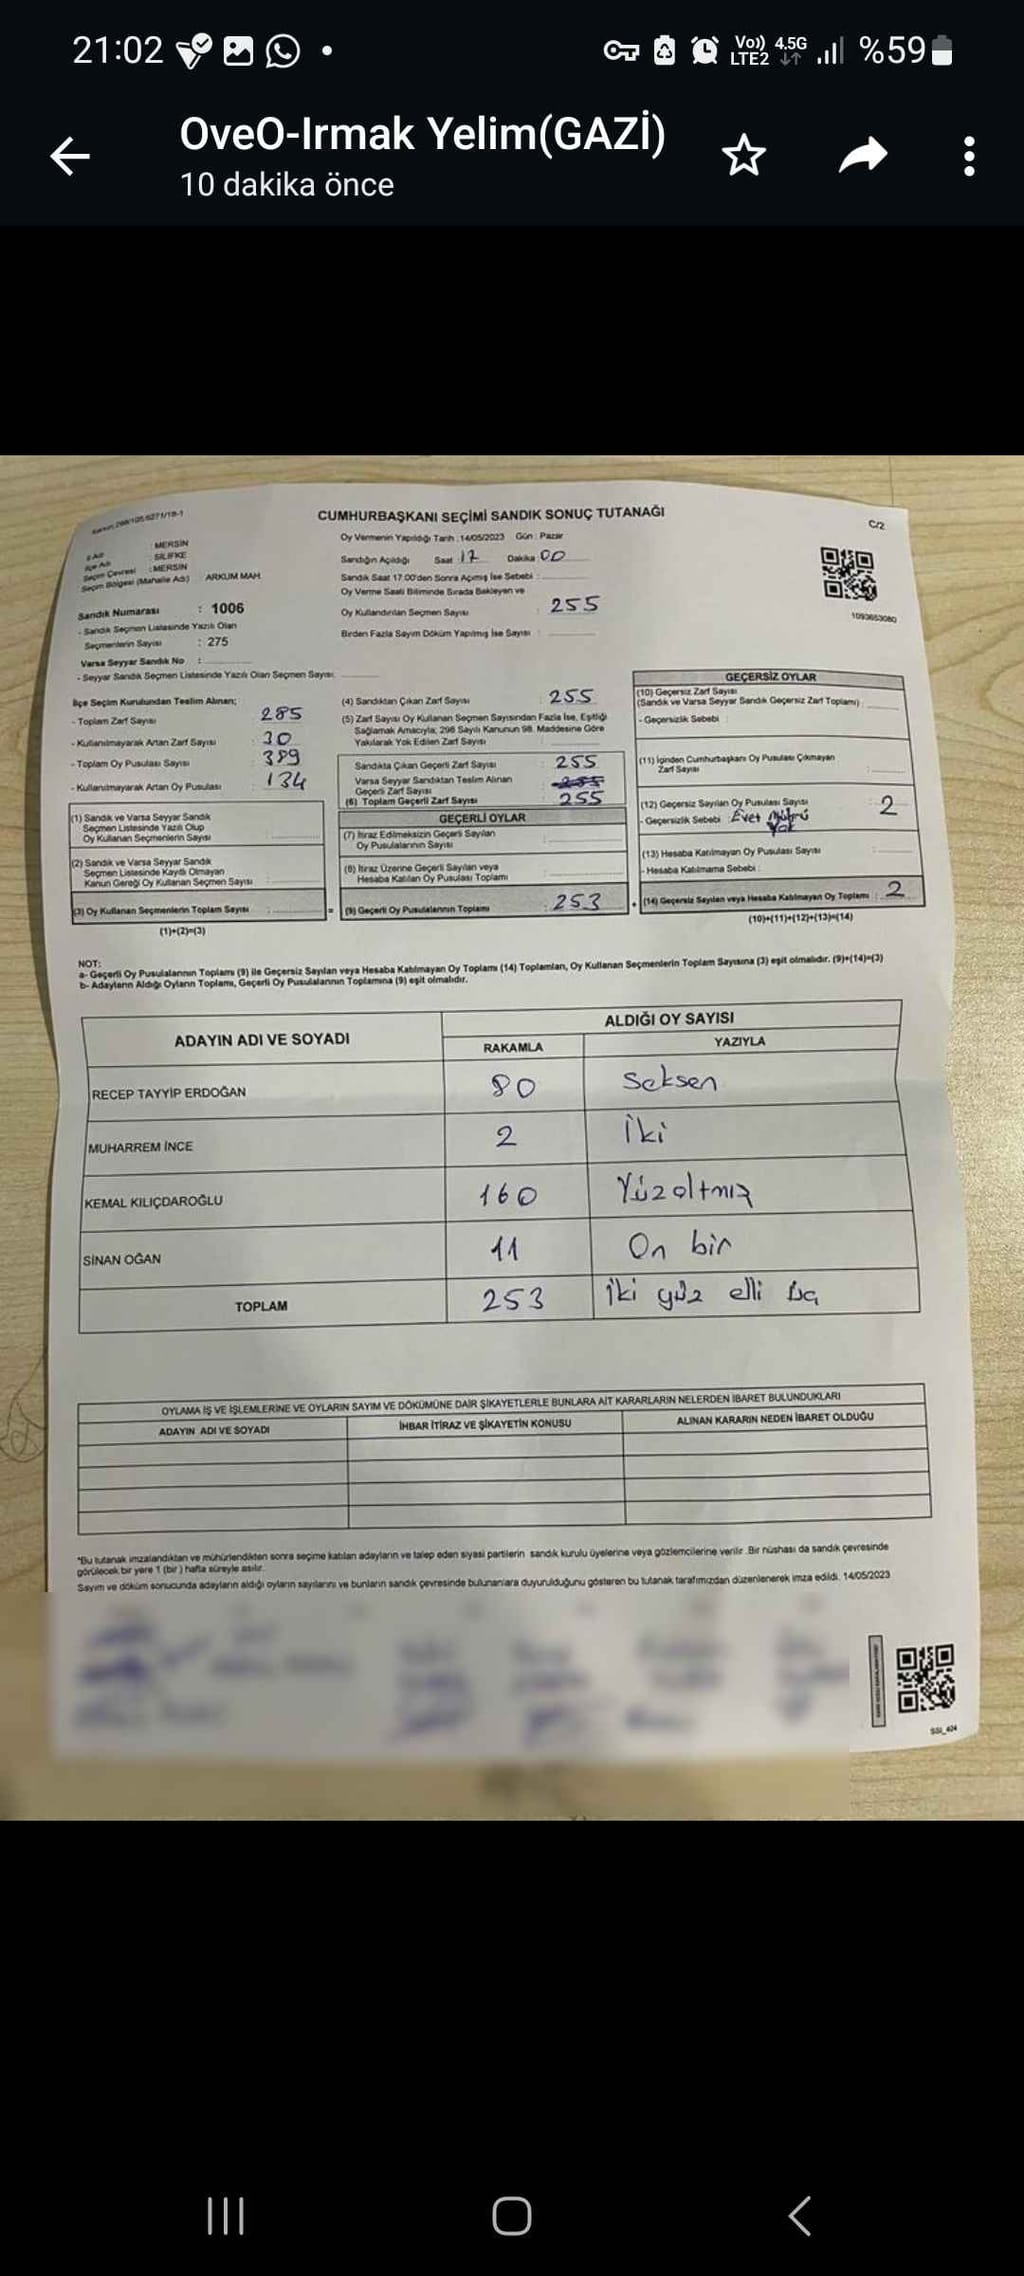 21:02
Vo)) 4.5G
LTE2
%59
OveO-Irmak Yelim(GAZİ)
10 dakika önce
CUMHURBAŞKANI SEÇİMİ SANDIK SONUÇ TUTANAĞI
C/2
MERSİN
SİLİFKE
Seçim Çevresi :MERSİN
Seçim Bölgesi (Mahalle Adı) ARKUM MAH.
Sandık Numarası : 1006
- Sandık Seçmen Listesinde Yazılı Olan
Seçmenlerin Sayısı : 275
Varsa Seyyar Sandık No :
- Seyyar Sandık Seçmen Listesinde Yazılı Olan Seçmen Sayısı
Oy Vermenin Yapıldığı Tarih :14/05/2023 Gün : Pazar
Sandığın Açıldığı Saat 17 Dakika 00
Sandık Saat 17.00'den Sonra Açımış İse Sebebi :
Oy Verme Saati Bitiminde Sırada Bekleyen ve
Oy Kullandırılan Seçmen Sayısı : 255
Birden Fazla Sayım Döküm Yapılmış İse Sayısı :
1093653080
İlçe Seçim Kurulundan Teslim Alınan;
- Toplam Zarf Sayısı : 285
- Kullanılmayarak Artan Zarf Sayısı : 30
- Toplam Oy Pusulası Sayısı : 389
- Kullanılmayarak Artan Oy Pusulası : 134
(1) Sandık ve Varsa Seyyar Sandık
Seçmen Listesinde Yazılı Olup
Oy Kullanan Seçmenlerin Sayısı
(2) Sandık ve Varsa Seyyar Sandık
Seçmen Listesinde Kaydı Olmayan
Kanun Gereği Oy Kullanan Seçmen Sayısı
(3) Oy Kullanan Seçmenlerin Toplam Sayısı :
(1)+(2)=(3)
(4) Sandıktan Çıkan Zarf Sayısı : 255
(5) Zarf Sayısı Oy Kullanan Seçmen Sayısından Fazla İse, Eşitliği
Sağlamak Amacıyla, 298 Sayılı Kanunun 98. Maddesine Göre
Yakılarak Yok Edilen Zarf Sayısı
Sandıkta Çıkan Geçerli Zarf Sayısı : 255
Varsa Seyyar Sandıktan Teslim Alınan
Geçerli Zarf Sayısı
(6) Toplam Geçerli Zarf Sayısı 255
GEÇERLİ OYLAR
(7) İtiraz Edilmeksizin Geçerli Sayılan
Oy Pusulalarının Sayısı
(8) İtiraz Üzerine Geçerli Sayılan veya
Hesaba Katılan Oy Pusulası Toplamı
= (9) Geçerli Oy Pusulalarının Toplamı : 253
GEÇERSİZ OYLAR
(10) Geçersiz Zarf Sayısı
(Sandık ve Varsa Seyyar Sandık Geçersiz Zarf Toplamı) :
- Geçersizlik Sebebi :
(11) İçinden Cumhurbaşkanı Oy Pusulası Çıkmayan
Zarf Sayısı
(12) Geçersiz Sayılan Oy Pusulası Sayısı : 2
- Geçersizlik Sebebi : Evet Mührü
Yok
(13) Hesaba Katılmayan Oy Pusulası Sayısı
- Hesaba Katılmama Sebebi :
+ (14) Geçersiz Sayılan veya Hesaba Katılmayan Oy Toplamı : 2
(10)+(11)+(12)+(13)=(14)
NOT:
a- Geçerli Oy Pusulalarının Toplamı (9) ile Geçersiz Sayılan veya Hesaba Katılmayan Oy Toplamı (14) Toplamları, Oy Kullanan Seçmenlerin Toplam Sayısına (3) eşit olmalıdır. (9)+(14)=(3)
b- Adayların Aldığı Oyların Toplamı, Geçerli Oy Pusulalarının Toplamına (9) eşit olmalıdır.
ADAYIN ADI VE SOYADI
ALDIĞI OY SAYISI
RAKAMLA YAZIYLA
RECEP TAYYİP ERDOĞAN 80 Seksen
MUHARREM İNCE 2 İki
KEMAL KILIÇDAROĞLU 160 Yüzaltmış
SİNAN OĞAN 11 On bir
TOPLAM 253 İki yüz elli üç
OYLAMA İŞ VE İŞLEMLERİNE VE OYLARIN SAYIM VE DÖKÜMÜNE DAİR ŞİKAYETLERLE BUNLARA AİT KARARLARIN NELERDEN İBARET BULUNDUKLARI
ADAYIN ADI VE SOYADI İHBAR İTİRAZ VE ŞİKAYETİN KONUSU ALINAN KARARIN NEDEN İBARET OLDUĞU
*Bu tutanak imzalandıktan ve mühürlendikten sonra seçime katılan adayların ve talep eden siyasi partilerin sandık kurulu üyelerine veya gözlemcilerine verilir. Bir nüshası da sandık çevresinde
görülecek bir yere 1 (bir) hafta süreyle asılır.
Sayım ve döküm sonucunda adayların aldığı oyların sayılarını ve bunların sandık çevresinde bulunanlara duyurulduğunu gösteren bu tutanak tarafımızdan düzenlenerek imza edildi. 14/05/2023